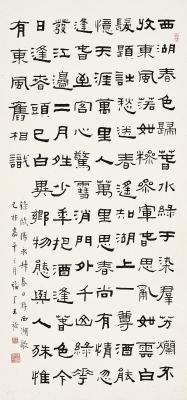 西湖春色歸春水綠于染羣芳爛不
收東風落如糝參軍春思亂如雲白
髮題詩愁送春遙知湖上一尊酒能
憶天涯萬里人萬里春思尚有情忽
逢春至客心驚雪消門外千山綠花
發江邊二月晴少年把酒逢春色今
日逢春頭已白異鄉物態與人殊惟
有東風舊相識
歐陽永叔春日西湖歌
福厂王禔